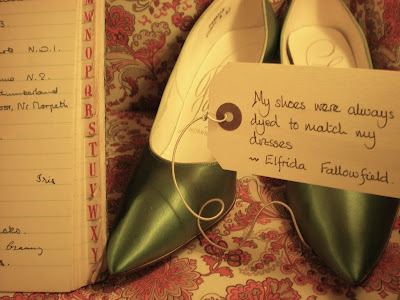 N.W.1.
3.
N.2.
Nr Morpeth
Iris
Granny
M
N
O
P
Q
R
S
T
U
V
W
X
Y
My shoes were always
dyed to match my
dresses
~ Elfrida Fallowfield.